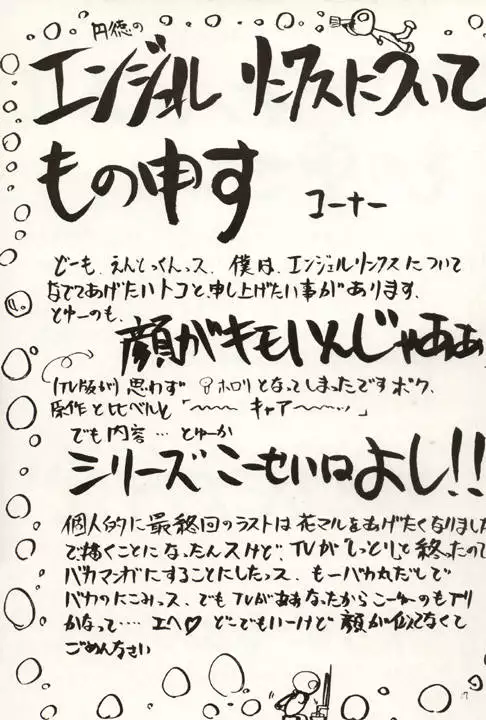 円徳の
エンジェルリンクスについて
もの申す
コーナー
どーも、えんとっくんっス、僕は、エンジェルリンクスについて
なでてあげたいトコと、申し上げたい事があります、
とゆーのも、
顔がキモいんじゃあぁ
(TV版が) 思わず ホロリとなってしまったですボク、
原作と比べると「〜〜〜 キャア〜〜〜ッ」
でも内容…とゆーか
シリーズこーせいはよし!!
個人的に最終回のラストは花マルをあげたくなりました
で描くことになったんスけど、TVが「しっとり」と終ったので
バカマンガにすることにしたっス、もーバカ丸だしで
バカのにこみっス、でもTVがああなったからこーゆーのもアリ
かなって‥‥ エヘ♡ どーでもいーけど顔が似てなくて
ごめんなさい